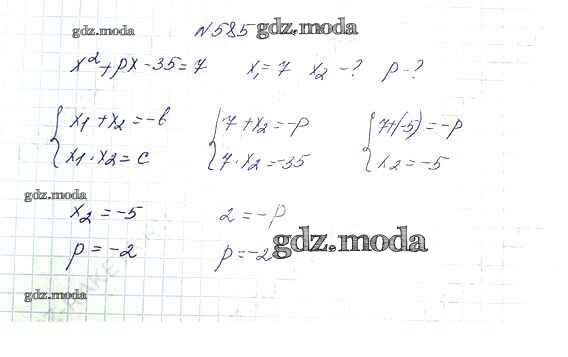 gdz.moda №585 gdz.moda
x²+px-35=7 x₁=7 x₂-? p-?
{x₁+x₂=-b {7+x₂=-p {7+(-5)=-p
{x₁·x₂=c {7·x₂=-35 {x₂=-5
gdz.moda
x₂=-5 2=-p
p=-2 p=-2 gdz.moda
gdz.moda